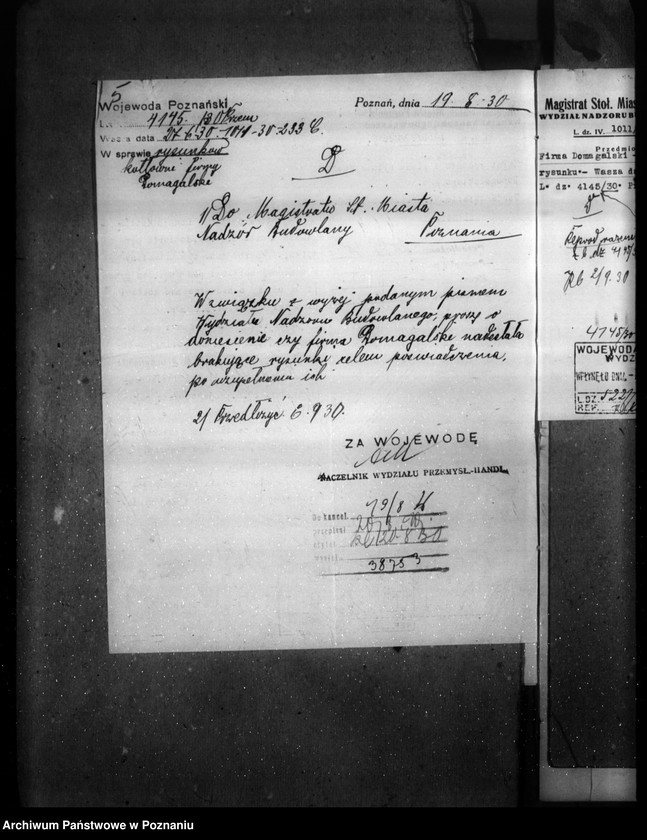 5
Wojewoda Poznański
L. 4145.30
Wasza data 27.6.30. 1011-30-233 C.
W sprawie rysunków
kotłowni firmy
Domagalski
Poznań, dnia 19. 8. 30
D
1/ Do Magistratu St. Miasta
Nadzór Budowlany Poznania
W związku z wyżej podanym pismem
Wydziału Nadzoru Budowlanego, proszę o
doniesienie czy firma Domagalski nadesłała
brakujące rysunki celem poświadczenia,
po uzupełnieniu ich
2/ Przedłożyć 6.9.30.
ZA WOJEWODĘ
NACZELNIK WYDZIAŁU PRZEMYSŁ.-HANDL.
19/8
Do kancel.
przepisał
czytał
wysłał
38753
Magistrat Stoł. Mias
WYDZIAŁ NADZORU B
L. dz. IV. 1011/
Przedmio
Firma Domagalski
rysunku.- Wasza d
L. dz. 4145/30. P
2/9.30
4145/30
WOJEWOD
WYDZ
WPŁYNĘŁO DNIA
L.DZ.
REF.
Archiwum Państwowe w Poznaniu